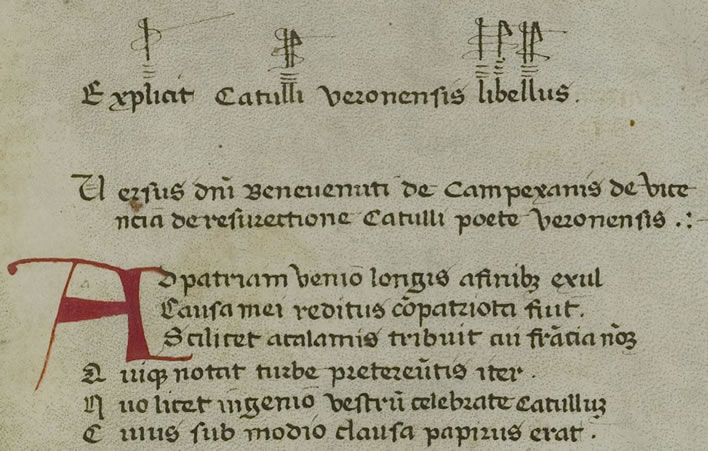 Explicit Catulli Veronensis libellus.
Versus dn̄i Beneuenuti de Campexanis de Vice
ncia de resurectione Catulli poete Veronensis .:
Ad patriam venio longis a finibꝫ exul
Causa mei reditus cōpatriota fuit.
Scilicet a calamis tribuit cui frācia nōꝫ
Quiqꝫ notat turbe pretereūtis iter .
Quo licet ingenio vestrū celebrate Catullūꝫ
Cuius sub modio clausa papirus erat .